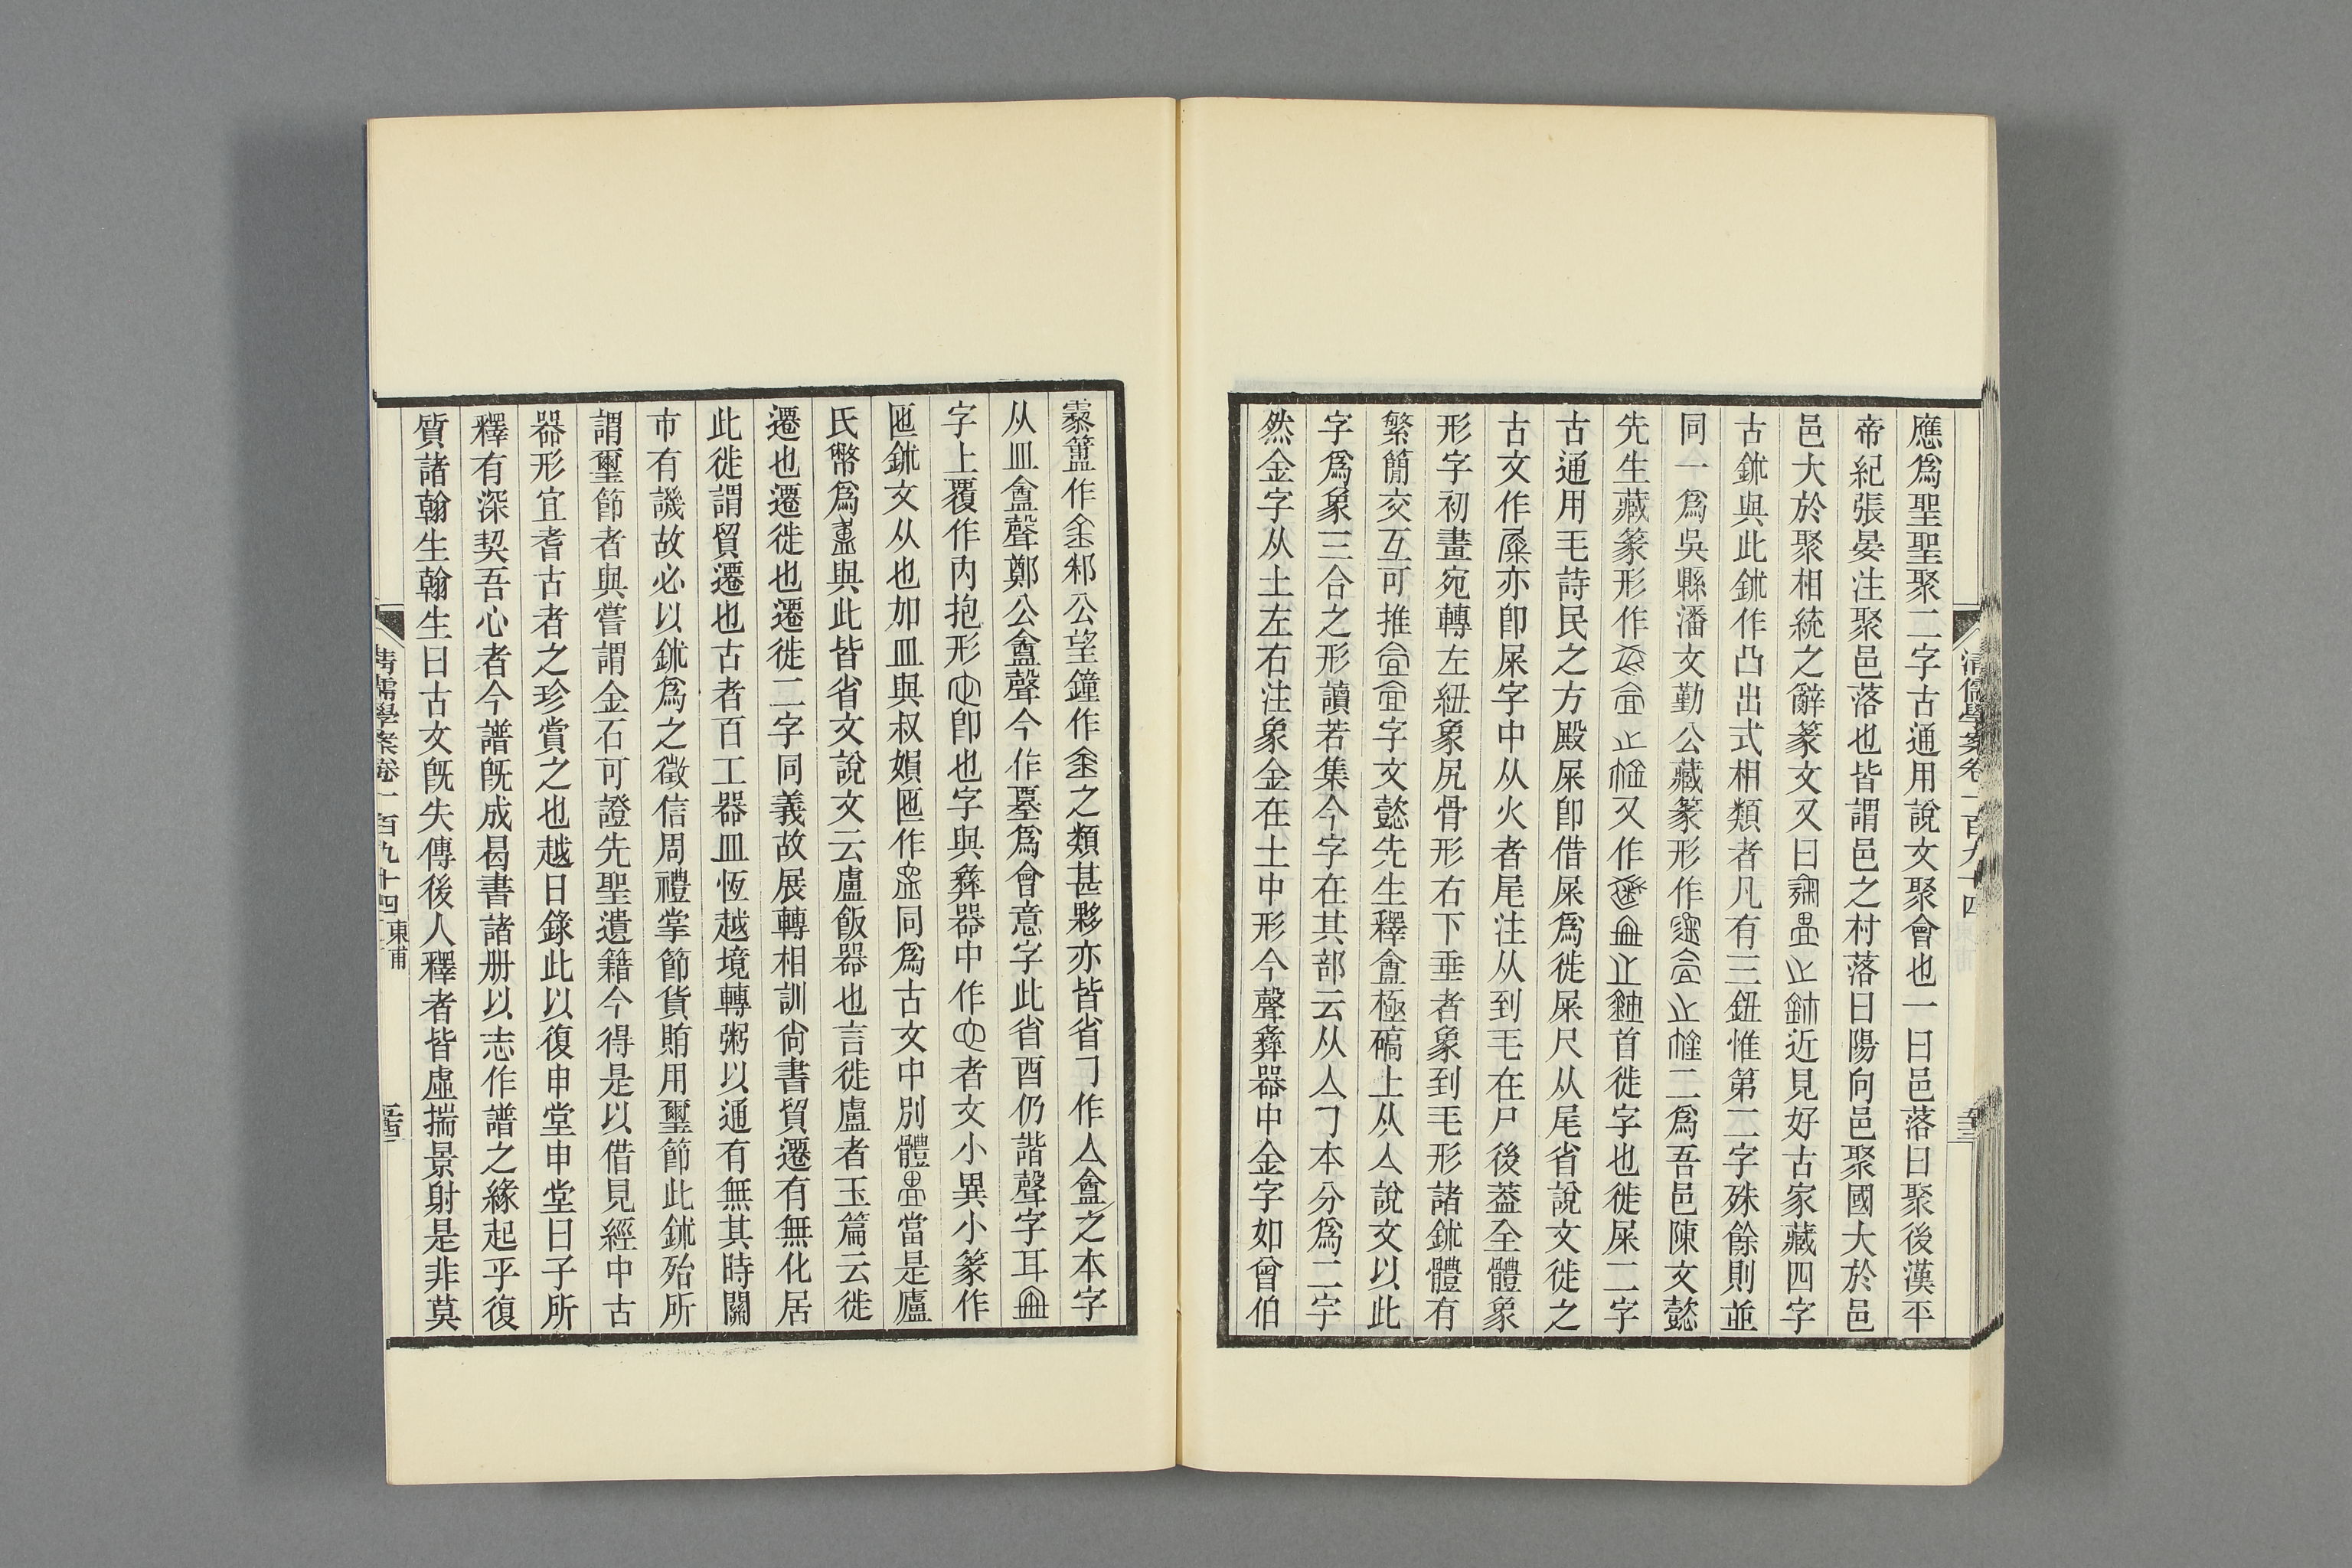 應爲聖聖聚二字古通用說文聚會也一曰邑落曰聚後漢平
帝紀張晏注聚邑落也皆謂邑之村落曰陽向邑聚國大於邑
邑大於聚相統之辭篆文又曰止鉨近見好古家藏四字
古鉨與此鉨作凸出式相類者凡有三鈕惟第二字殊餘則並
同一爲吳縣潘文勤公藏篆形作二爲吾邑陳文懿
先生藏篆形作又作首徙字也徙屎二字
古通用毛詩民之方殿屎卽借屎爲徙屎尺从尾省說文徙之
古文作亦卽屎字中从火者尾注从到毛在尸後葢全體象
形字初畫宛轉左紐象尻骨形右下垂者象到毛形諸鉨體有
繁簡交互可推字文懿先生釋盦極碻上从亼說文以此
字爲象三合之形讀若集今字在其部云从亼㇆本分爲二字
然金字从土左右注象金在土中形今聲彝器中金字如曾伯
霥簠作邾公望鐘作之類甚夥亦皆省㇆作亼盦之本字
从皿酓聲鄭公盦聲今作䀄爲會意字此省酉仍諧聲字耳
字上覆作内抱形卽也字與彝器中作者文小異小篆作
匜鉨文从也加皿與叔娟匜作同爲古文中別體當是廬
氏幣爲與此皆省文說文云盧飯器也言徙盧者玉篇云徙
遷也遷徙也遷徙二字同義故展轉相訓尙書貿遷有無化居
此徙謂貿遷也古者百工器皿恆越境轉粥以通有無其時關
市有譏故必以鉨爲之徵信周禮掌節貨賄用璽節此鉨殆所
謂璽節者與嘗謂金石可證先聖遺籍今得是以借見經中古
器形宜耆古者之珍賞之也越日錄此以復申堂申堂曰子所
釋有深契吾心者今譜旣成曷書諸册以志作譜之緣起乎復
質諸翰生翰生曰古文旣失傳後人釋者皆虛揣景射是非莫
清儒學案卷一百九十四 東甫